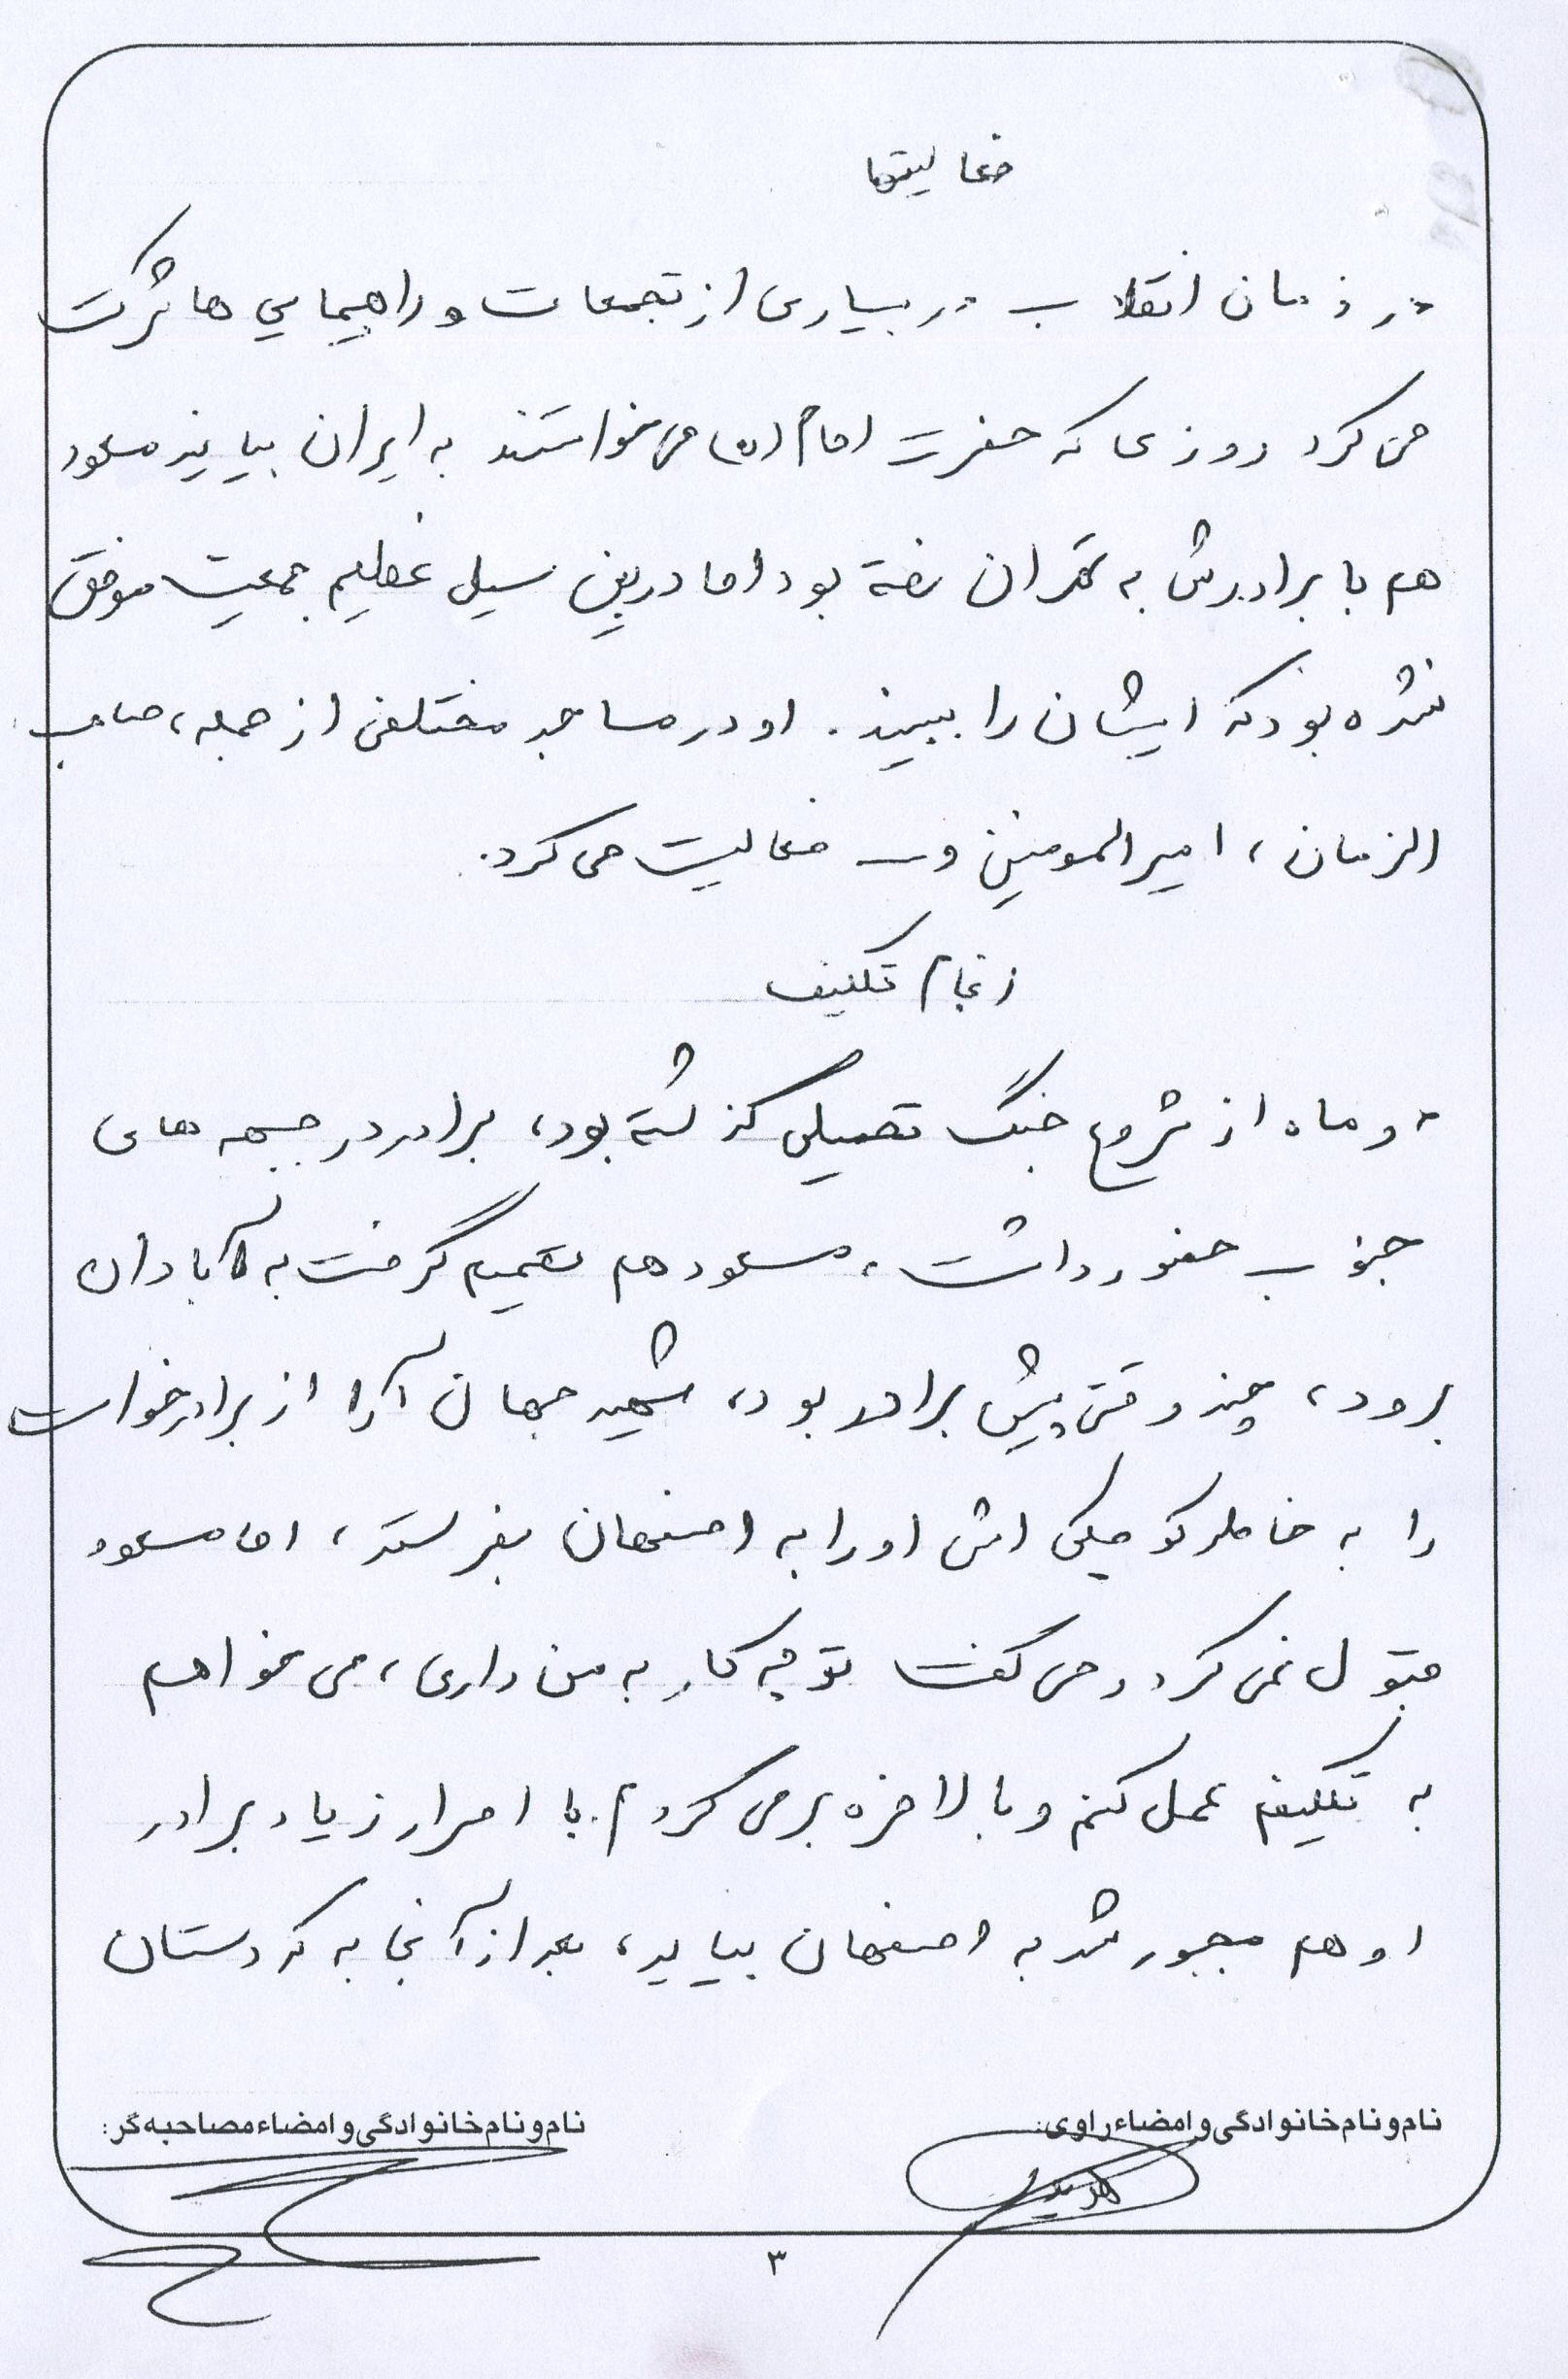 فعالیتها
در زمان انقلاب در بسیاری از تجمعات و راهپیمایی ها شرکت
می کرد روزی که حضرت امام (ره) می خواستند به ایران بیایند مسعود
هم با برادرش به تهران رفته بود اما در بین سیل عظیم جمعیت موفق
نشده بود که ایشان را ببیند. او در مساجد مختلفی از جمله، صاحب
الزمان، امیرالمومنین و... فعالیت می کرد.
انجام تکلیف
دو ماه از شروع جنگ تحمیلی گذشته بود، برادر در جبهه های
جنوب حضور داشت، مسعود هم تصمیم گرفت به آبادان
برود، چند وقتی پیش برادر بود، شهید جهان آرا از برادر خواست
را به خاطر کوچکی اش او را به اصفهان بفرستد، اما مسعود
قبول نمی کرد و می گفت تو چه کار به من داری، می خواهم
به تکلیفم عمل کنم و بالاخره برمی گردم. با اصرار زیاد برادر
او هم مجبور شد به اصفهان بیاید، بعد از آنجا به کردستان
نام و نام خانوادگی و امضاء راوی:
نام و نام خانوادگی و امضاء مصاحبه گر:
۳